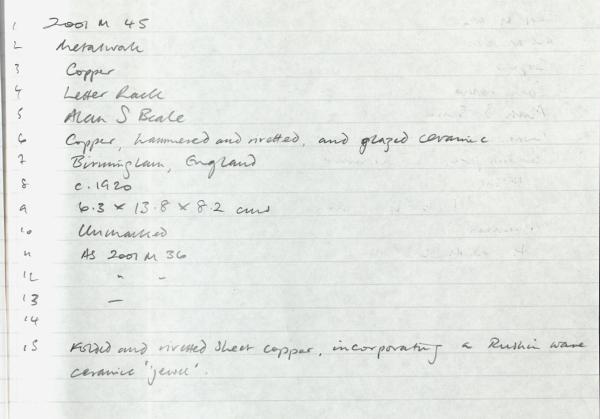 1 2001 M 45
2 Metalwork
3 Copper
4 Letter Rack
5 Alan S Beale
6 Copper, hammered and rivetted, and glazed ceramic
7 Birmingham, England
8 c. 1920
9 6.3 × 13.8 × 8.2 cms
10 Unmarked
11 AS 2001 M 36
12 " "
13 —
14
15 Folded and rivetted sheet copper, incorporating a Ruskin ware
ceramic 'jewel'.